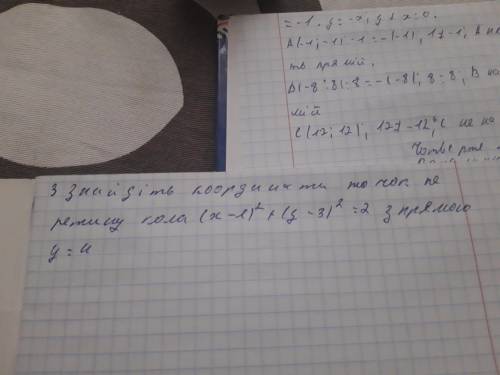 = -1. y = -x, y + x = 0.
A(-1; -1) -1 = -(-1), 1 ≠ -1, A не
ть прямій.
B(-8; 8) 8 = -(-8); 8 = 8, B на
мій
C(12; 12), 12 ≠ -12, C не на
3 знайдіть координати точок пе
ретину кола (x-1)² + (y-3)² = 2 з прямою
y = 4